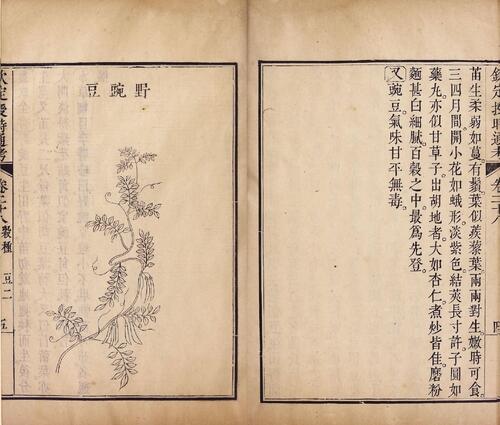 欽定授時通考 卷二十八
苗生柔弱如蔓。有鬚。葉似蒺藜葉。兩兩對生。嫩時可食。
三四月間。開小花如蛾形。淡紫色。結莢長寸許。子圓如
藥丸。亦似甘草子。出胡地者。大如杏仁。煮炒皆佳。磨粉
麵甚白細膩。百穀之中。最爲先登。
又豌豆。氣味甘平無毒。
野豌豆
欽定授時通考 卷二十八 穀種 豆二 五